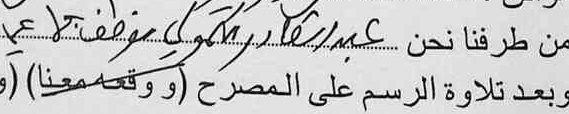 من طرفنا نحن عبد القادر الكمولي موظف
وبعد تلاوة الرسم على المصرح (و وقعه معنا) (و